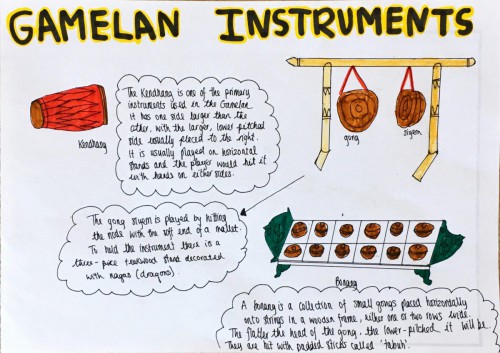 GAMELAN INSTRUMENTS
The Kendhang is one of the primary
instruments used in the Gamelan
It has one side larger than the
other, with the larger, lower pitched
side usually placed to the right.
It is usually played on horizontal
stands and the player would hit it
with hands on either sides.
Kendhang
gong
siyem
The gong siyem is played by hitting
the node with the soft end of a mallet.
To hold the instrument there is a
three-piece teakwood stand decorated
with nagas (dragons)
Bonang
A bonang is a collection of small gongs placed horizontally
onto strings in a wooden frame, either one or two rows wide.
The flatter the head of the gong, the lower-pitched it will be.
They are hit with padded sticks called 'tabuh'.